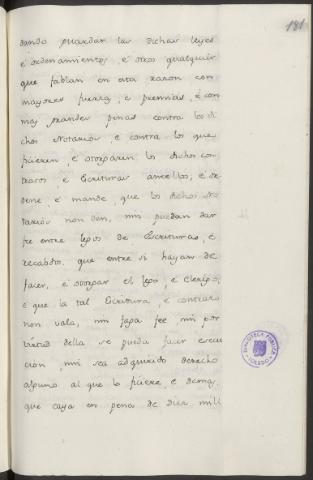 181
dando guardar las dichas leyes
é ordenamientos, é otros qualquier
que fablan en esta razon con
mayores fuerzas, e premias, é con
muy grandes penas contra los di-
chos Notarios, e contra los que
ficieren, é otorgaren los dichos con-
tratos, e Escrituras ante ellos, é or-
dene, e mande, que los dichos No-
tarios non den, nin puedan dar
fee entre legos de Escrituras, e
recabdos, que entre si hayan de
facer, é otorgar el lego, e Clerigo,
e que la tal Escritura, é contrato
non vala, nin faga fee nin por
virtud della se pueda facer execu-
cion, nin sea adquirido derecho
alguno al que lo ficiere, e demas
que caya en pena de diez mill
BIBLIOTECA PUBLICA
TOLEDO